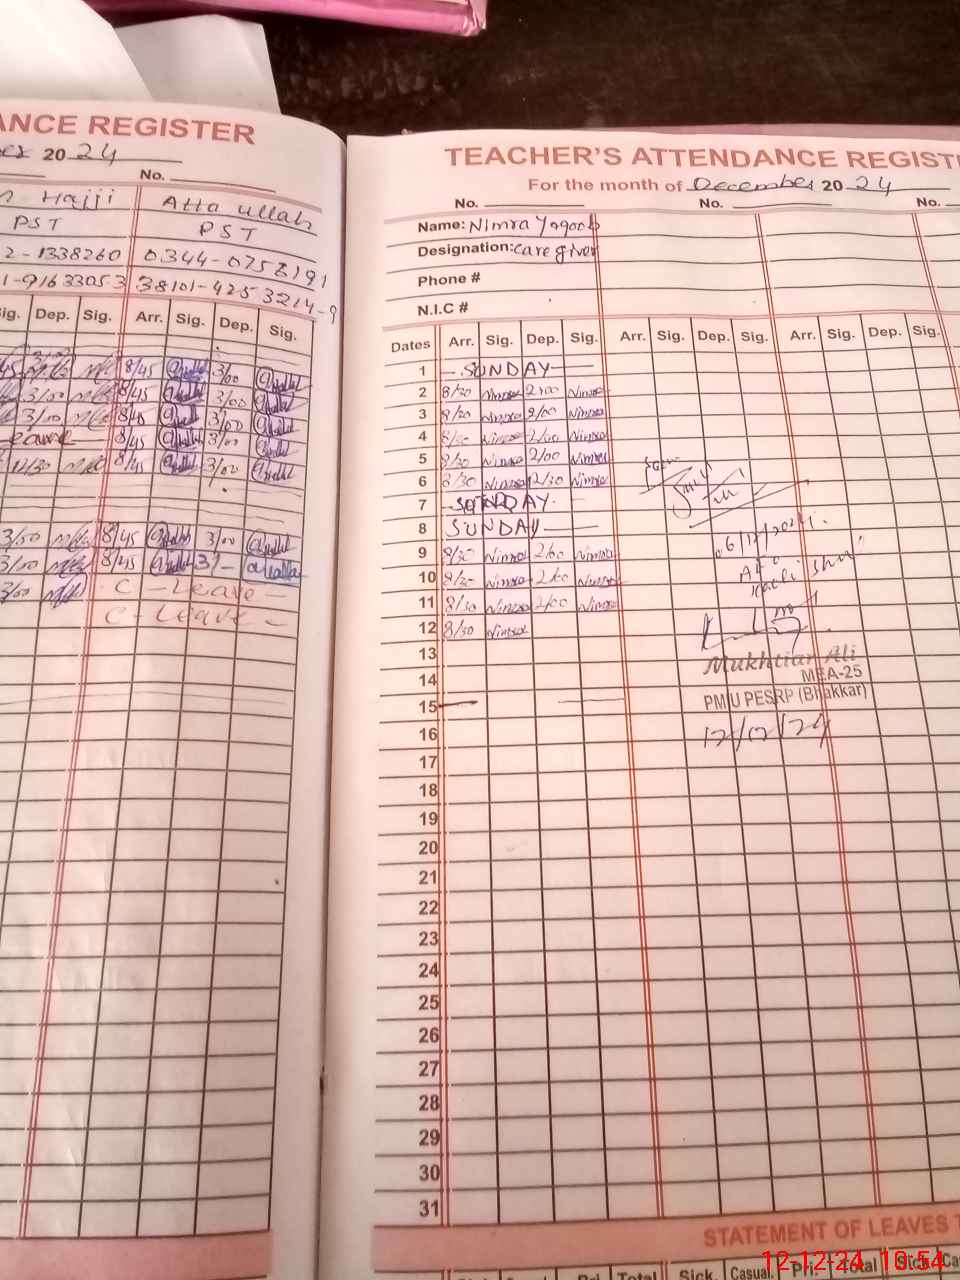 ANCE REGISTER
20 24
No.
Hajji
Atta ullah
PST
PST
2-1338260
0344-0758191
1-9163305-3
38101-4253214-9
Sig. Dep. Sig. Arr. Sig. Dep. Sig.
8/45 3/00
3/00 8/45 3/00
3/00 8/45 3/00
Leave 8/45 3/00
12/30 8/45 3/00
3/00 8/45 3/00
3/00 8/45 3/-
3/00 C - Leave -
C - Leave -
TEACHER'S ATTENDANCE REGIST
For the month of December 20 24
No. No. No.
Name: Nimra Yaqoob
Designation: care giver
Phone #
N.I.C #
Dates Arr. Sig. Dep. Sig. Arr. Sig. Dep. Sig. Arr. Sig. Dep. Sig.
1 SUNDAY
2 8/30 Nimra 2/00 Nimra
3 8/30 Nimra 2/00 Nimra
4 8/30 Nimra 2/00 Nimra
5 8/30 Nimra 2/00 Nimra
6 8/30 Nimra 12/30 Nimra
7
8 SUNDAY
9 8/30 Nimra 2/00 Nimra
10 8/30 Nimra 2/00 Nimra
11 8/30 Nimra 2/00 Nimra
12 8/30 Nimra
13
14
15
16
17
18
19
20
21
22
23
24
25
26
27
28
29
30
31
06/12/2024
Mukhtiar Ali
MEA-25
PMIU PESRP (Bhakkar)
12/12/24
STATEMENT OF LEAVES T
Total Sick. Casual. Pri. Total Sick. Cas
12-12-24 10:54